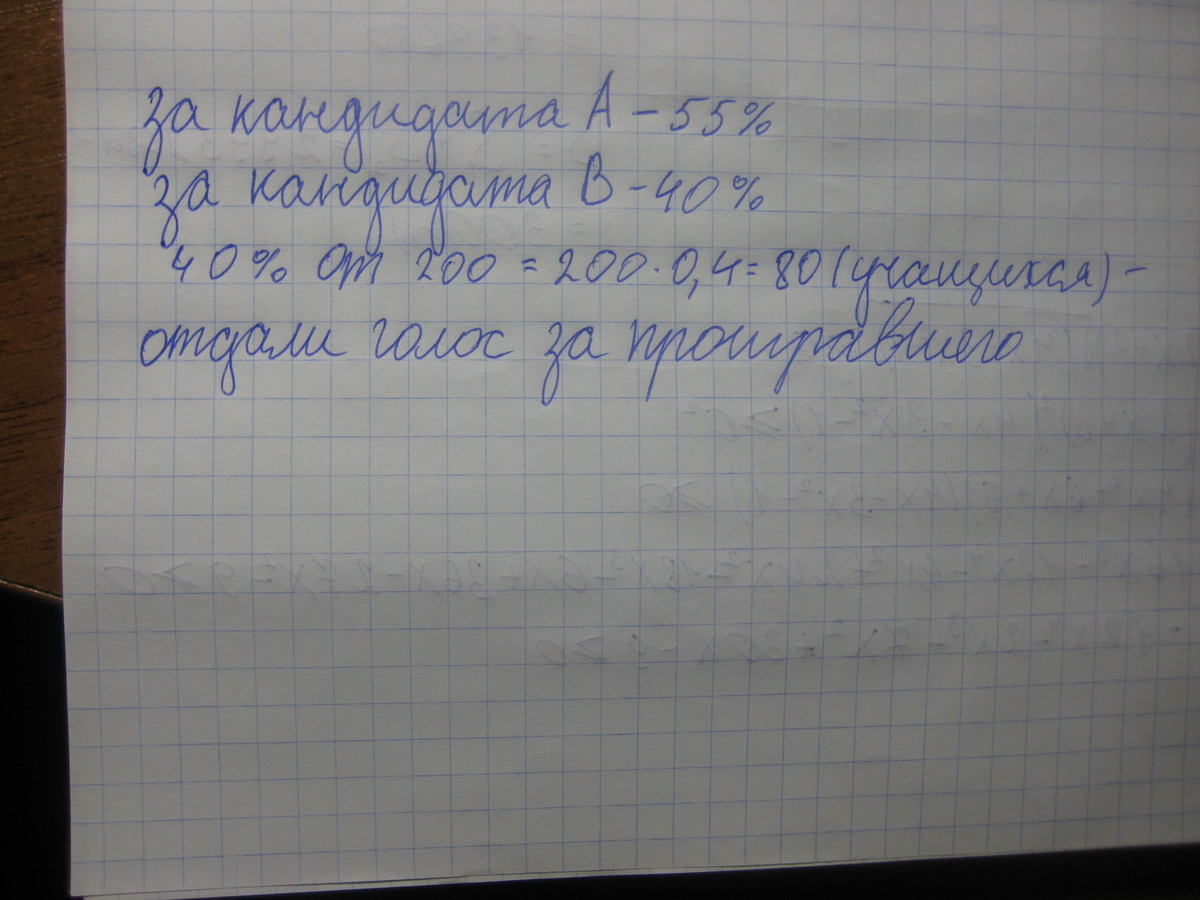 за кандидата А - 55%
за кандидата В - 40%
40% от 200 = 200 · 0,4 = 80 (учащихся) -
отдали голос за проигравшего